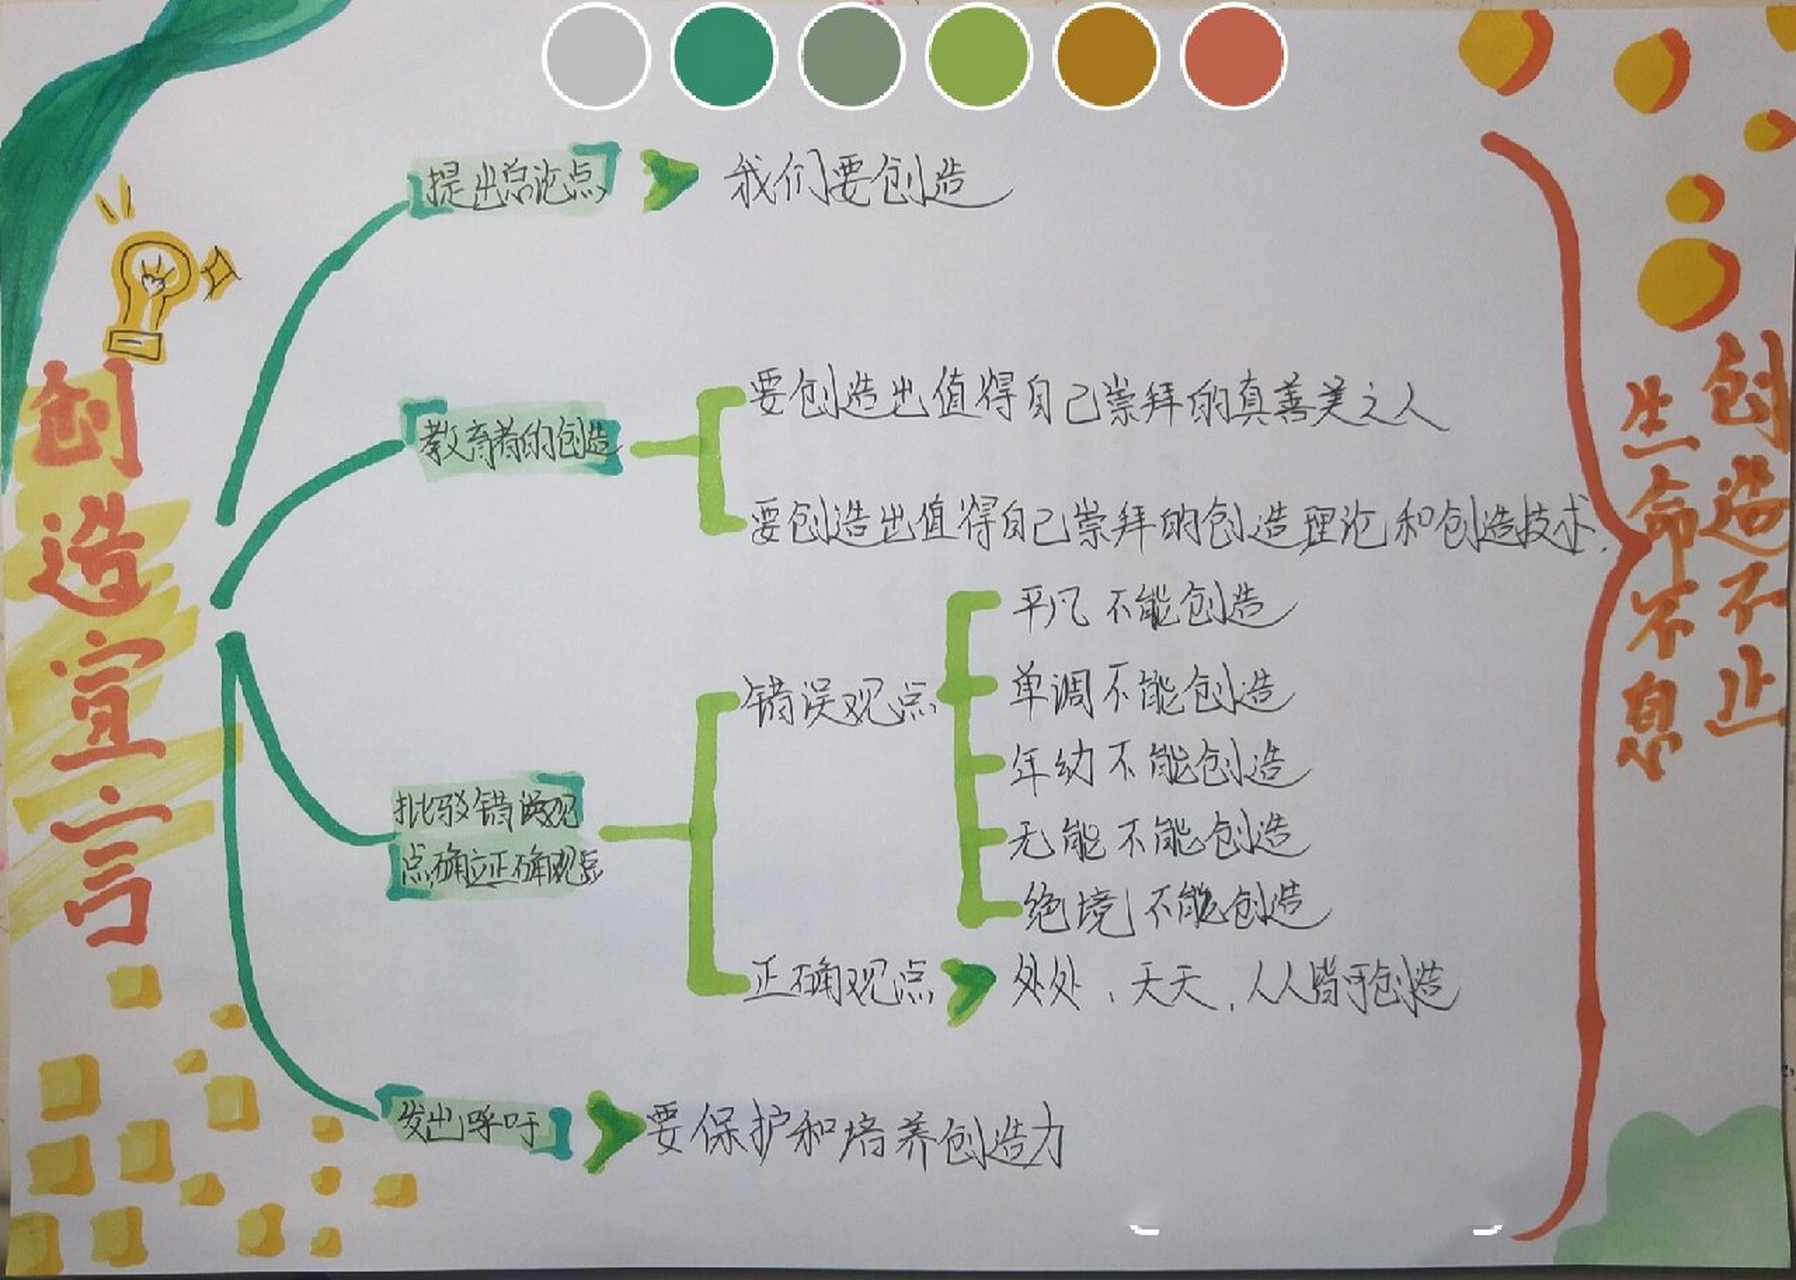 创造宣言
提出总论点
我们要创造
教育者的创造
要创造出值得自己崇拜的真善美之人
要创造出值得自己崇拜的创造理论和创造技术.
批驳错误观
点,确立正确观点
错误观点
平凡不能创造
单调不能创造
年幼不能创造
无能不能创造
绝境不能创造
正确观点
处处、天天、人人皆可创造
发出呼吁
要保护和培养创造力
创造不止
生命不息